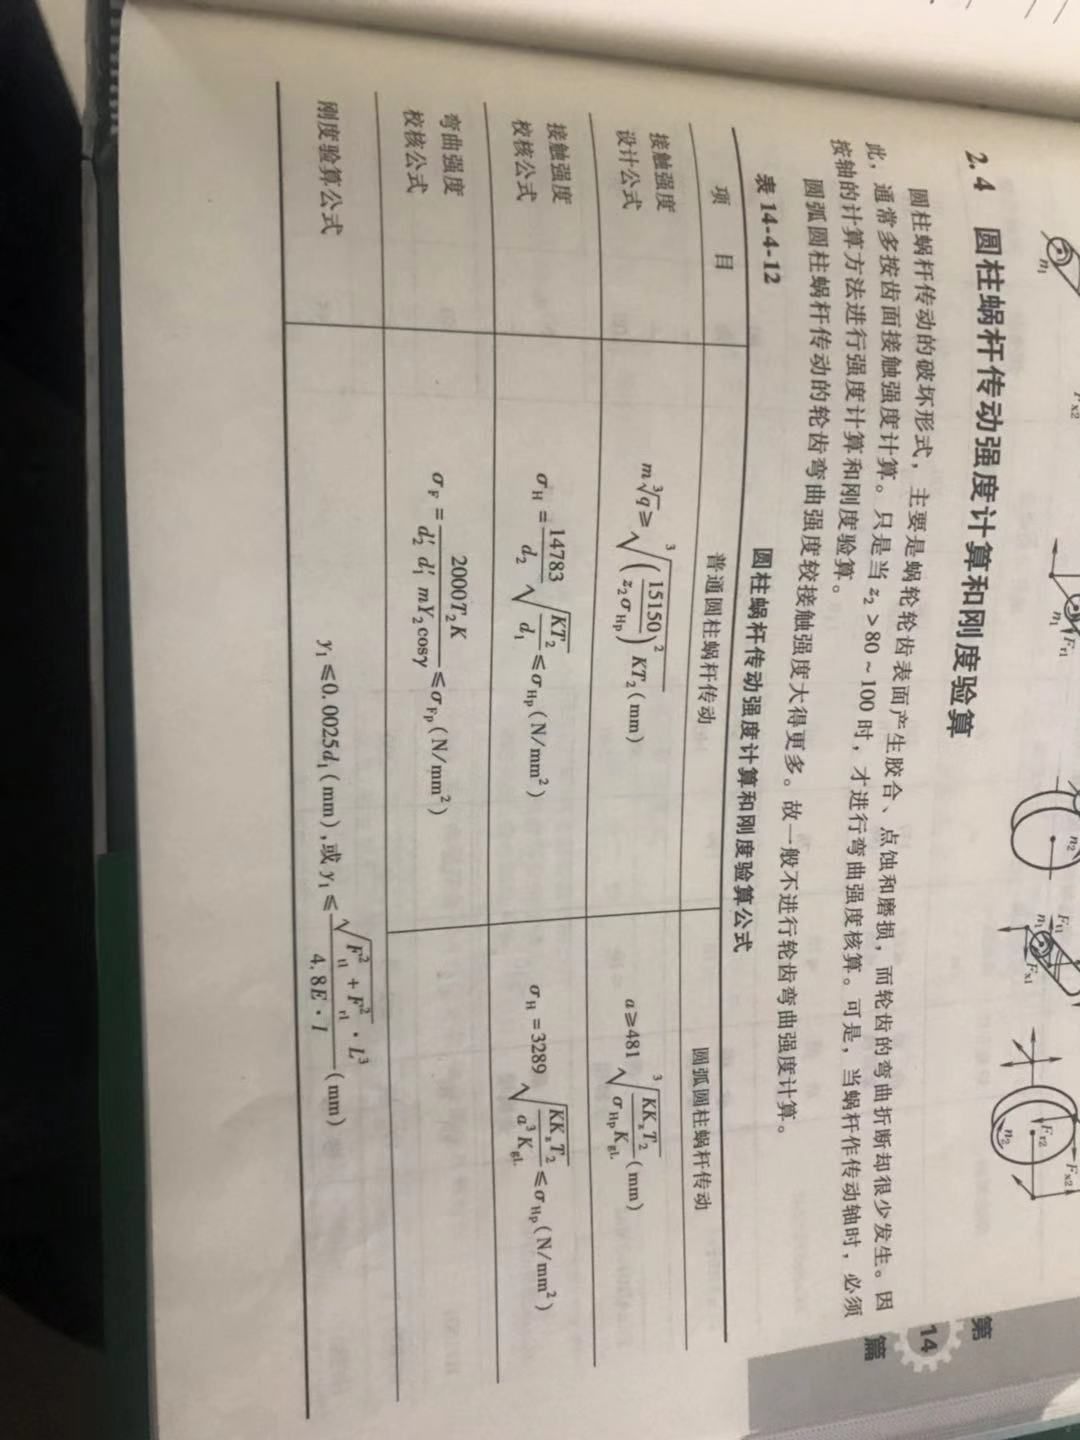 n₁
Fx2
n₁ Fr1
n₂
Ft1
n₁
Fx1
Fr2
n₂
Fx2
第
14
篇
2.4 圆柱蜗杆传动强度计算和刚度验算
圆柱蜗杆传动的破坏形式，主要是蜗轮轮齿表面产生胶合、点蚀和磨损，而轮齿的弯曲折断却很少发生。因
此，通常多按齿面接触强度计算。只是当 z₂>80~100 时，才进行弯曲强度核算。可是，当蜗杆作传动轴时，必须
按轴的计算方法进行强度计算和刚度验算。
圆弧圆柱蜗杆传动的轮齿弯曲强度较接触强度大得更多。故一般不进行轮齿弯曲强度计算。
表 14-4-12 圆柱蜗杆传动强度计算和刚度验算公式
项 目 普通圆柱蜗杆传动 圆弧圆柱蜗杆传动
接触强度
设计公式
m∛q ≥ ∛((15150/(z₂σHp))² KT₂) (mm)
a≥481 ∛(KKₐT₂/(σHp KgL)) (mm)
接触强度
校核公式
σH = 14783/d₂ √(KT₂/d₁) ≤σHp(N/mm²)
σH =3289 √(KKₐT₂/(a³KgL)) ≤σHp(N/mm²)
弯曲强度
校核公式
σF = 2000T₂K/(d′₂ d′₁ mY₂cosγ) ≤σFp(N/mm²)
刚度验算公式
y₁≤0.0025d₁(mm),或 y₁≤ √(F²t1 + F²r1)·L³/(4.8E·I) (mm)